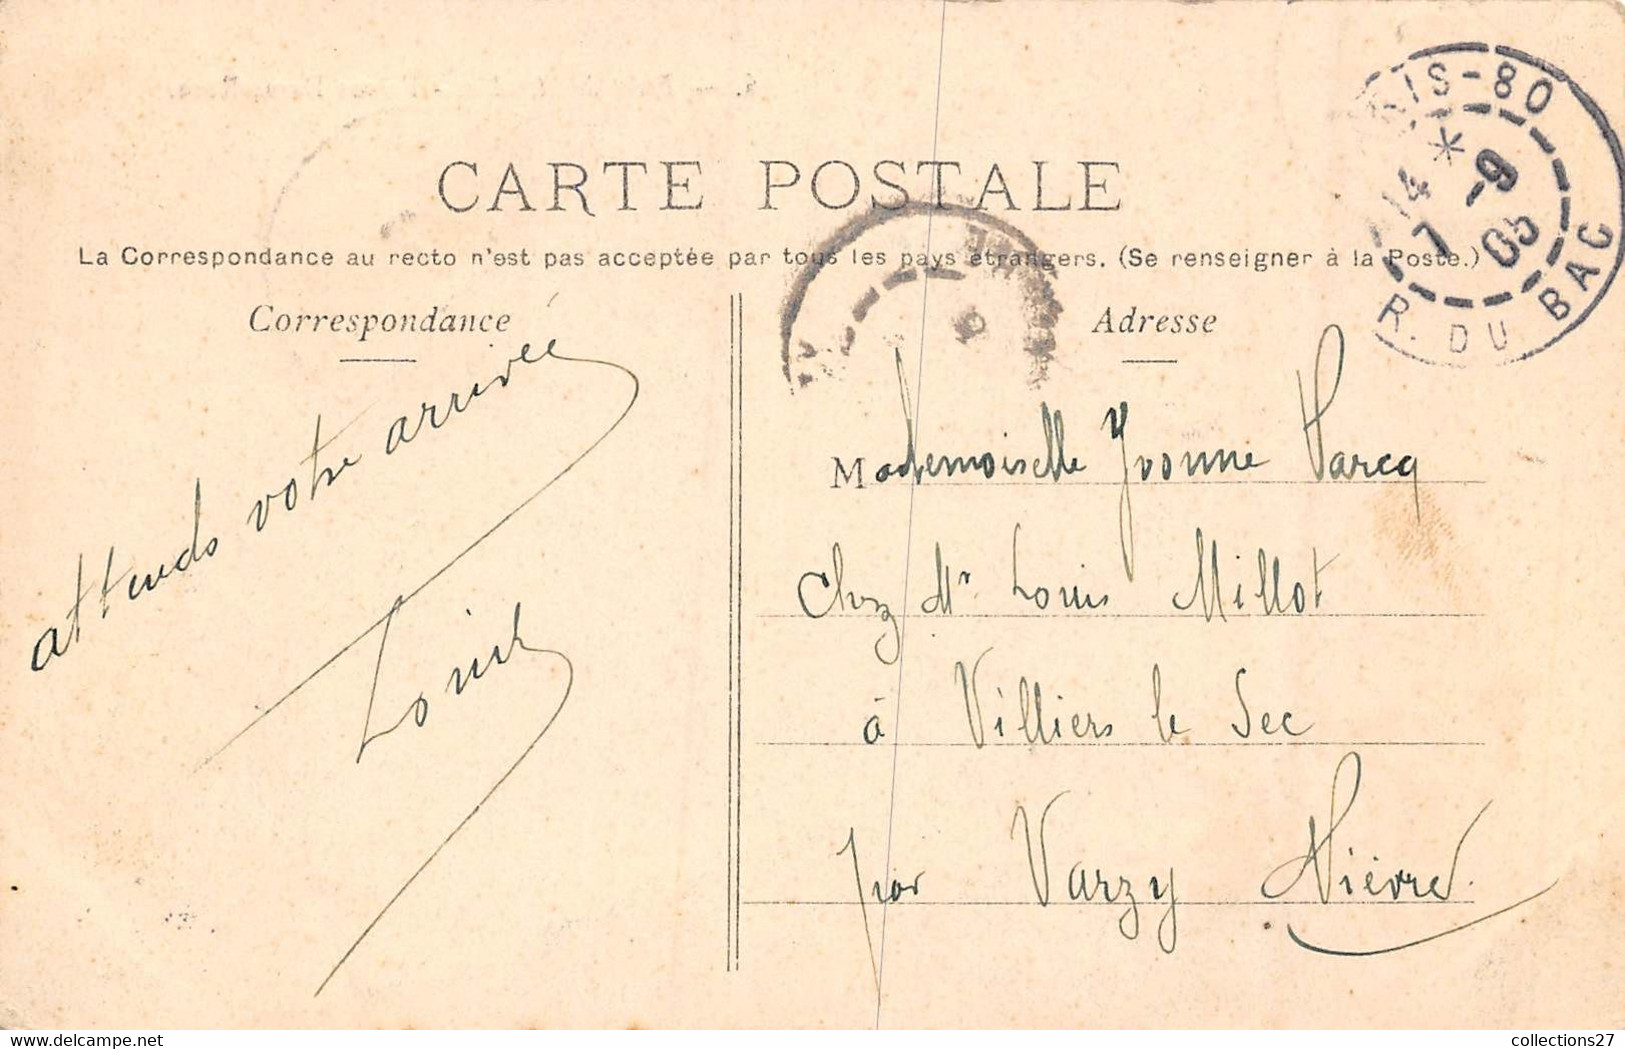 CARTE POSTALE
La Correspondance au recto n'est pas acceptée par tous les pays étrangers. (Se renseigner à la Poste.)
Correspondance
attends votre arrivée
Louis
Adresse
Mademoiselle Yvonne Varcq
Chez Mr Louis Millot
à Villiers le Sec
par Varzy Nièvre.
RIS-80
14 * 7 -9 05
R. DU BAC
delcampe.net
collections27